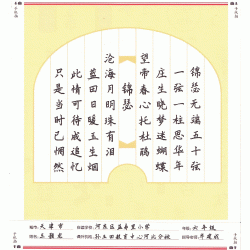 锦瑟无端五十弦
一弦一柱思华年
庄生晓梦迷蝴蝶
望帝春心托杜鹃
锦瑟
沧海月明珠有泪
蓝田日暖玉生烟
此情可待成追忆
只是当时已惘然
天津市 河东区益寿里小学 年级 六年级
姓名 王 孙玉田教育中心河北分校 指导老师